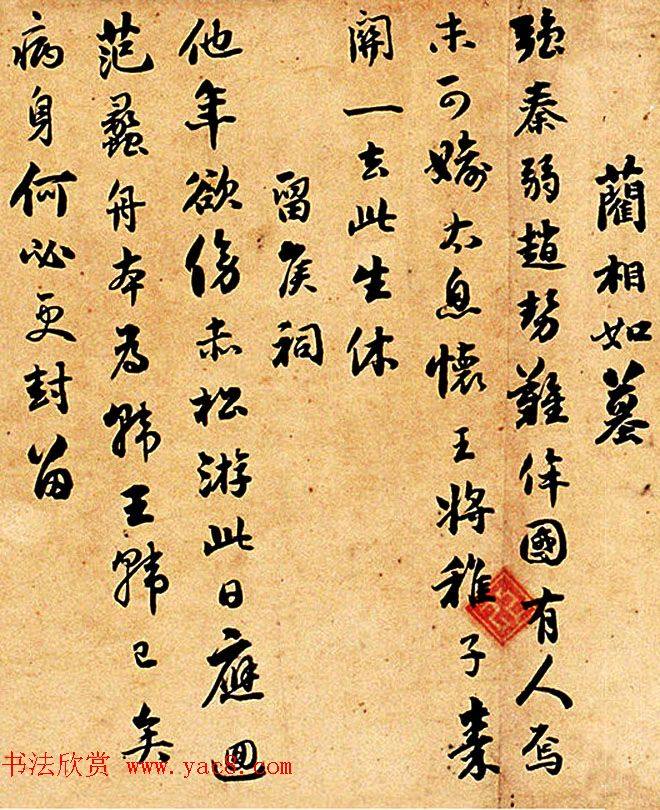 藺相如墓
强秦弱趙勢難侔國有人焉
未可媮太息懷王將稚子秦
關一去此生休
留侯祠
他年欲傍赤松游此日應囬
范蠡舟本為韓王韓已矣
病身何必更封留
书法欣赏 www.yac8.com